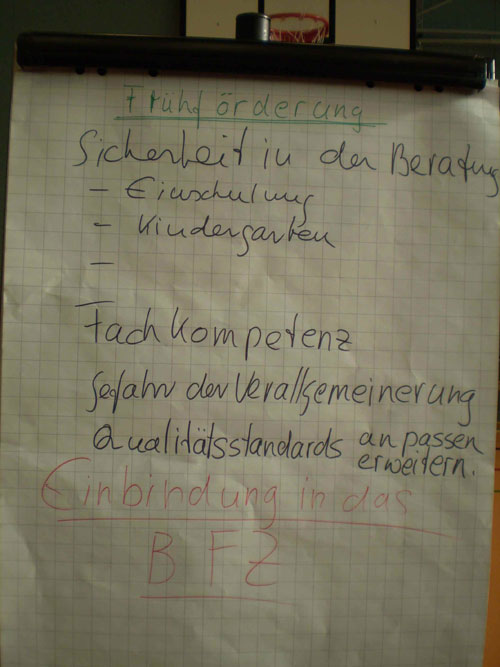 Frühförderung
Sicherheit in der Beratung
- Einschulung
- Kindergarten
-
-
Fachkompetenz
Gefahr der Verallgemeinerung
Qualitätsstandards anpassen
erweitern.
Einbindung in das
BFZ